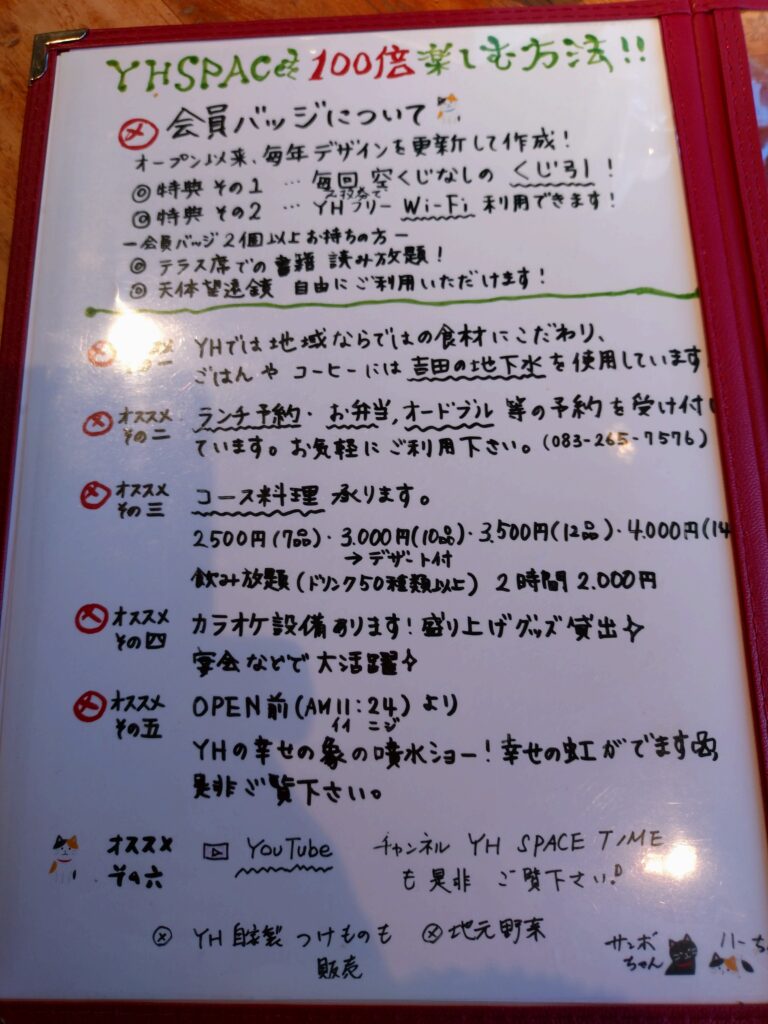 YHSPACEを100倍楽しむ方法!!
会員バッジについて
オープン以来、毎年デザインを更新して作成!
◎特典 その1 … 毎回 空くじなしの くじ引!
◎特典 その2 … YHフリー Wi-Fi 利用できます!
ー会員バッジ2個以上お持ちの方ー
◎テラス席での書籍 読み放題!
◎天体望遠鏡 自由にご利用いただけます!
YHでは地域ならではの食材にこだわり、
ごはんや コーヒーには 吉田の地下水を使用しています
オススメ その二 ランチ予約・お弁当,オードブル 等の予約を受け付
ています。お気軽にご利用下さい。(083-265-7576)
オススメ その三 コース料理 承ります。
2500円(7品)・3.000円(10品)・3,500円(12品)・4.000円(14
→デザート付
飲み放題(ドリンク50種類以上) 2時間 2.000円
オススメ その四 カラオケ設備あります!盛り上げグッズ貸出
宴会などで大活躍
オススメ その五 OPEN前(AM11:24)より
イイ ニジ
YHの幸せの象の噴水ショー!幸せの虹がでます
是非ご覧下さい。
オススメ その六 YouTube チャンネル YH SPACE TIME
も是非 ご覧下さい!
YH自家製 つけものも 地元野菜
販売
サンボちゃん